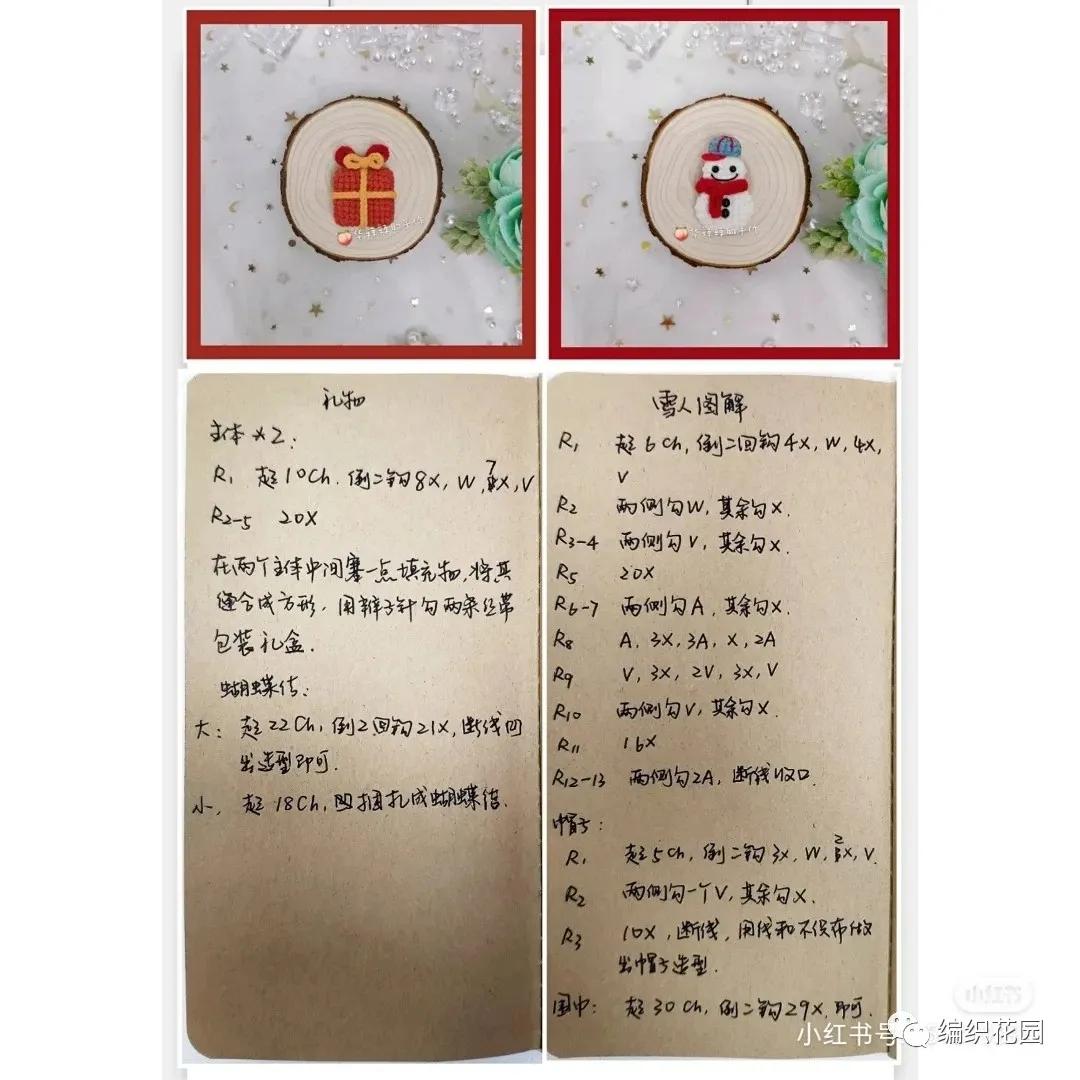 礼物
主体×2:
R1 起10Ch,倒二钩8X,W,7X,V
R2-5 20X
在两个主体中间塞一点填充物,将其
缝合成方形,用辫子针勾两条丝带
包装礼盒.
蝴蝶结:
大: 起22Ch,倒2回钩21X,断线凹
出造型即可.
小, 起18Ch,捆扎成蝴蝶结.
雪人图解
R1 起6Ch,倒二回钩4X,W,4X,
V
R2 两侧勾W,其余勾X.
R3-4 两侧勾V,其余勾X.
R5 20X
R6-7 两侧勾A,其余勾X.
R8 A,3X,3A,X,2A
R9 V,3X,2V,3X,V
R10 两侧勾V,其余勾X.
R11 16X
R12-13 两侧勾2A,断线收口.
帽子:
R1 起5Ch,倒二钩3X,W,2X,V.
R2 两侧勾一个V,其余勾X.
R3 10X,断线,用线和不织布做
出帽子造型.
围巾: 起30Ch,倒二钩29X,即可.
小红书
小红书号
编织花园